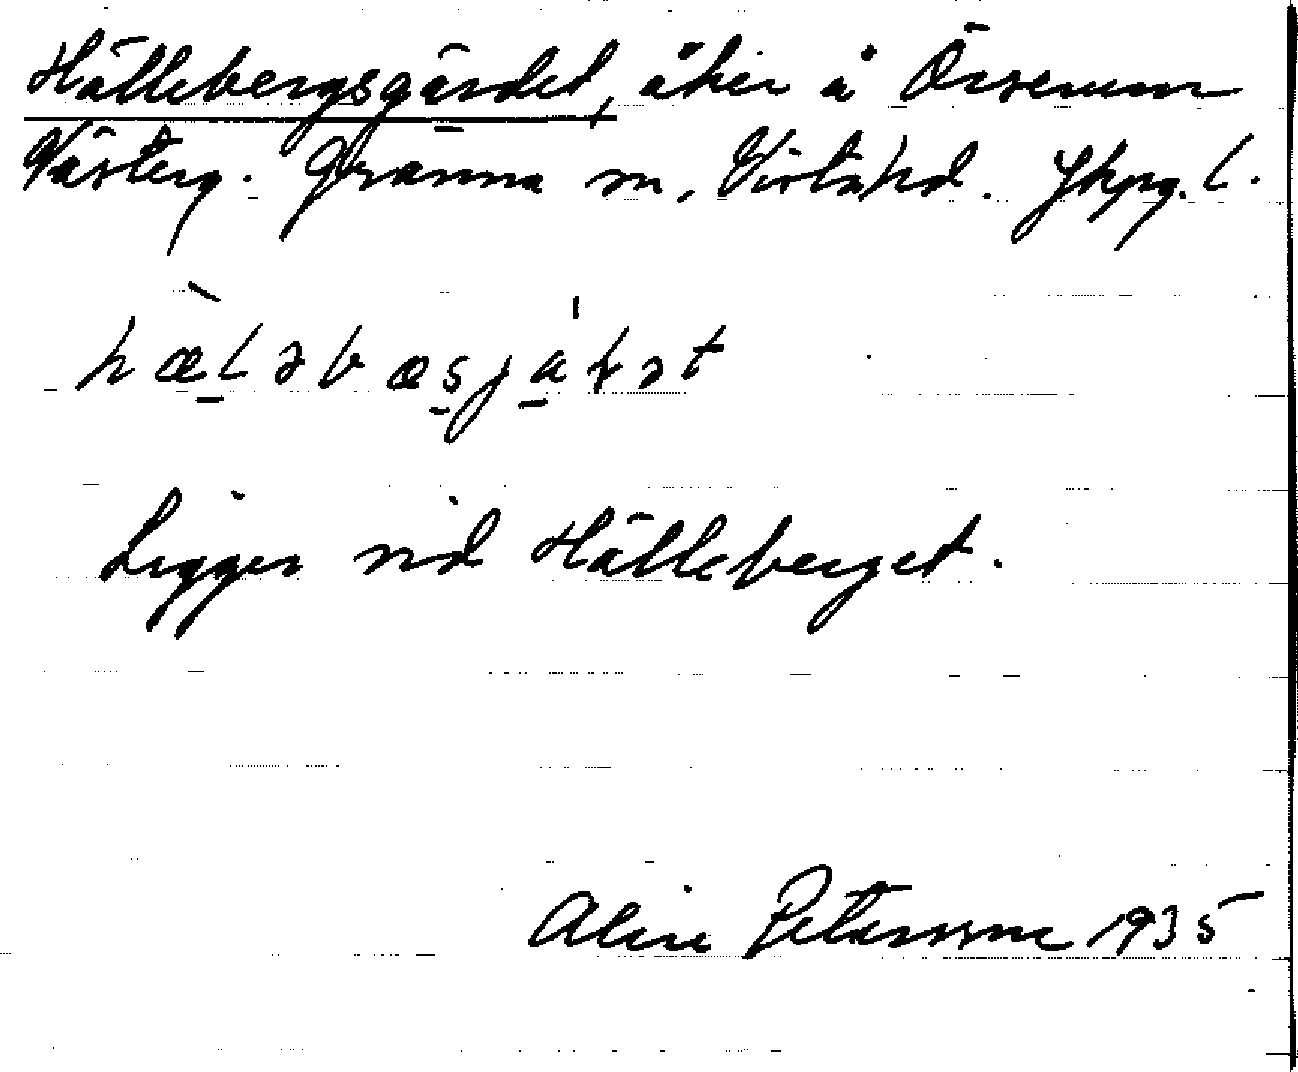 Hällebergsgärdet, åker å Örserum
Västerg. Gränna sn, Vistahd. Jkpg. l.
hæ̀ləbæsjáʈət
Ligger vid Hälleberget.
Alice Petersson 1935